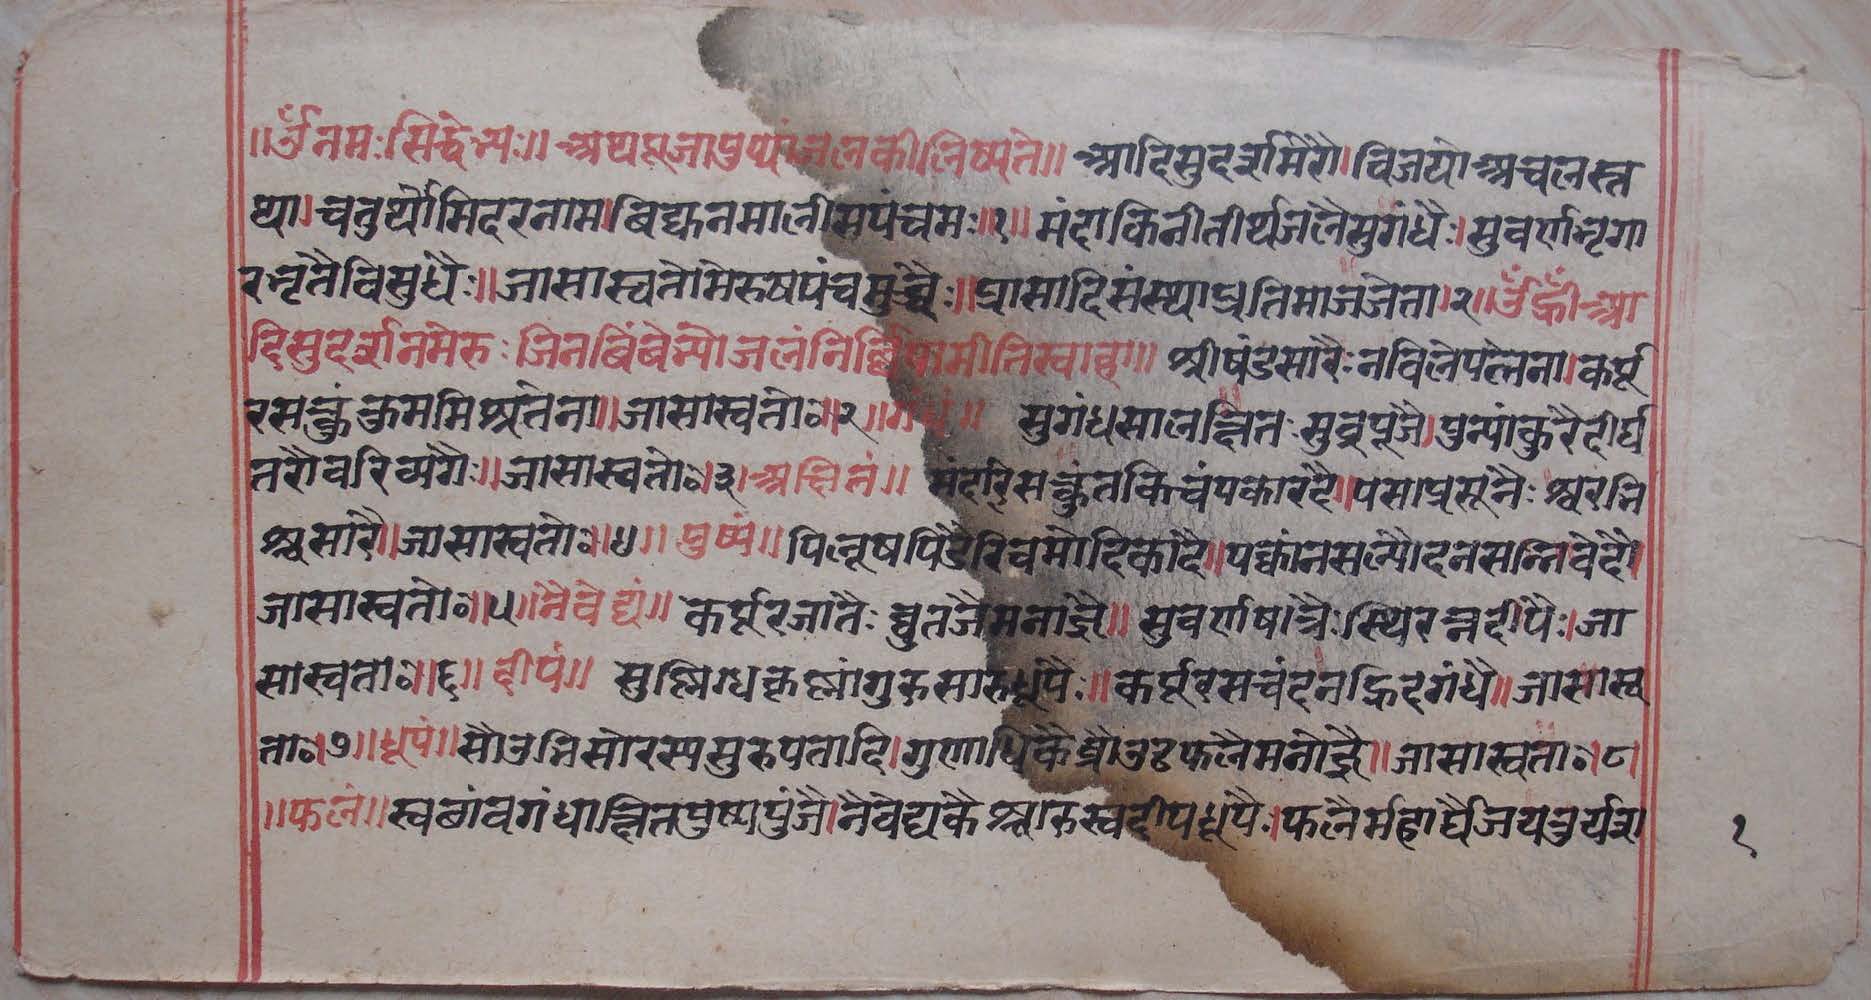 ॥ॐ नमः सिद्धेभ्यः॥ अथ पूजा पुष्पांजलकी लिष्यते॥ आदिसुदर्शमेरौ।विजयो अचलस्त
था।चतुर्थो मिदरनाम।बिद्युनमालीमपंचमः॥१॥ मंदाकिनीतीर्थजलैसुगंधैः।सुवर्णभृगा
रभृतैविसुधैः॥जासास्वतोमेरुषपंचमुच्चैः॥प्रासादिसंस्थाप्रतिमाजजेता।२॥ॐ ह्रीं आ
दिसुदर्शनमेरुः जिनबिंबेभ्यो जलं निर्व्वपामीतिस्वाहा॥ श्रीषंडसारैः नविलेपत्नेना।कर्पू
रसत्कुंकुममिश्रतेना॥जासास्वतो०॥२॥गंधं॥ सुगंधसालक्षितः सुव्रपूजै।पुन्यांकुरैदीर्घ
तरौवरिष्यगैः॥जासास्वतो०।३।अक्षितं॥ मंदारिसत्कुंतकिचंपकारहै॥पसाप्रसूनैः श्वरान्नि
श्रुसारै॥जासास्वतो०॥४॥ पुष्पं॥ पियूषपिंडैरिवमोदिकांदै॥पक्वांनसल्योदनसन्निवेदौ।
जासास्वतो०॥५॥नैवेद्यं॥ कर्पूरजातैः घृतजैमनाज्ञै॥ सुवर्णषात्रैः स्थिररत्नदीपैः।जा
सास्वता०॥६॥ दीपं॥ सुस्निग्धकृष्णांगुरुसारुधूपैः॥कर्पूरसचंदनह्रिदगंधै॥जासास्व
ता०।७॥धूपं॥सौउन्निसोरस्पसुरुपतादि।गुणाधिकैश्रौउटफलैमनोज्ञै॥जासास्वता०।८।
॥फलं॥स्वबांवगंधाक्षितपुष्पपुंजै।नैवेद्यकैश्चारुस्वदीपधूपैः।फलैर्महार्घैजियत्तुर्यरा
१